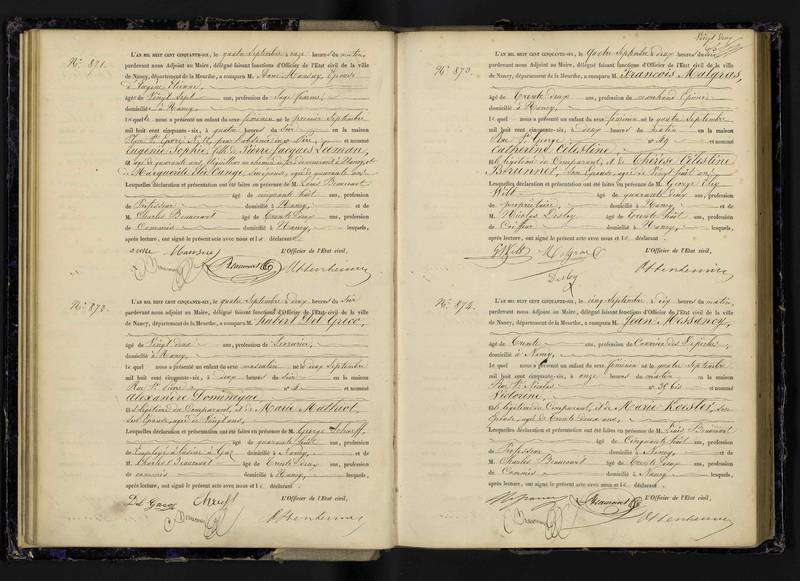 Nº. 871.
L'AN MIL HUIT CENT CINQUANTE-SIX, le quatre Septembre à onze heures du matin
pardevant nous Adjoint au Maire, délégué faisant fonctions d'Officier de l'Etat civil de la ville
de Nancy, département de la Meurthe, a comparu M. Anne Épouse
d'Eugène Etienne,
âgé de Vingt Sept ans, profession de Sage femme,
domicilié à Nancy,
Lequel nous a présenté un enfant du sexe féminin né le premier Septembre
mil huit cent cinquante-six, à quatre heures du Soir en la maison
et nommé
Eugénie Sophie, fille de Pierre Jacques
âgé de quarante ans,
Marguerite
Lesquelles déclaration et présentation ont été faites en présence de M. Louis Beaucourt
âgé de cinquante huit ans, profession
de Professeur domicilié à Nancy, et de
M. Charles Beaucourt âgé de Trente Deux ans, profession
de Commis domicilié à Nancy, lesquels,
après lecture, ont signé le présent acte avec nous et le déclarant
L'Officier de l'Etat civil,
Nº. 872.
L'AN MIL HUIT CENT CINQUANTE-SIX, le quatre Septembre à deux heures du Soir
pardevant nous Adjoint au Maire, délégué faisant fonctions d'Officier de l'Etat civil de la ville
de Nancy, département de la Meurthe, a comparu M. Hubert Del Greco,
âgé de Vingt deux ans, profession de Serrurier,
domicilié à Nancy,
Lequel nous a présenté un enfant du sexe masculin né le deux Septembre
mil huit cent cinquante-six, à deux heures du Soir en la maison
Rue St. nº 4 et nommé
Alexandre Dominique
fils légitime du Comparant, & de Marie
Son Epouse, âgée de Vingt ans,
Lesquelles déclaration et présentation ont été faites en présence de M. George
âgé de quarante huit ans, profession
d'Employé à l'usine à Gaz domicilié à Nancy, et de
M. Charles Beaucourt âgé de Trente Deux ans, profession
de commis domicilié à Nancy, lesquels,
après lecture, ont signé le présent acte avec nous et le déclarant
L'Officier de l'Etat civil,
Nº. 873.
L'AN MIL HUIT CENT CINQUANTE-SIX, le Quatre Septembre à deux heures du Soir
pardevant nous Adjoint au Maire, délégué faisant fonctions d'Officier de l'Etat civil de la ville
de Nancy, département de la Meurthe, a comparu M. François Malgras,
âgé de Trente Deux ans, profession de marchand Epicier,
domicilié à Nancy,
Lequel nous a présenté un enfant du sexe féminin né le quatre Septembre
mil huit cent cinquante-six, à deux heures du matin en la maison
Rue St. George nº 49 et nommé
Catherine Célestine,
fille légitime du Comparant, & de Thérèse Célestine
Son Epouse, âgée de Vingt huit ans,
Lesquelles déclaration et présentation ont été faites en présence de M. George
Wils âgé de quarante deux ans, profession
de propriétaire, domicilié à Nancy, et de
M. Nicolas Desloy âgé de Trente huit ans, profession
de Coiffeur domicilié à Nancy, lesquels,
après lecture, ont signé le présent acte avec nous et le déclarant
L'Officier de l'Etat civil,
Desloy
Nº. 874.
L'AN MIL HUIT CENT CINQUANTE-SIX, le cinq Septembre à dix heures du matin,
pardevant nous Adjoint au Maire, délégué faisant fonctions d'Officier de l'Etat civil de la ville
de Nancy, département de la Meurthe, a comparu M. Jean
âgé de Trente ans, profession de Courrier des Dépêches,
domicilié à Nancy,
Lequel nous a présenté un enfant du sexe féminin né le quatre Septembre
mil huit cent cinquante-six, à onze heures du matin en la maison
Rue St. Nicolas nº 35 bis et nommé
Victorine,
fille légitime du Comparant, & de Marie Son
Epouse, âgée de Trente deux ans,
Lesquelles déclaration et présentation ont été faites en présence de M. Louis Beaucourt
âgé de Cinquante huit ans, profession
de Professeur domicilié à Nancy et de
M. Charles Beaucourt âgé de Trente Deux ans, profession
de Commis domicilié à Nancy lesquels,
après lecture, ont signé le présent acte avec nous et le déclarant
L'Officier de l'Etat civil,